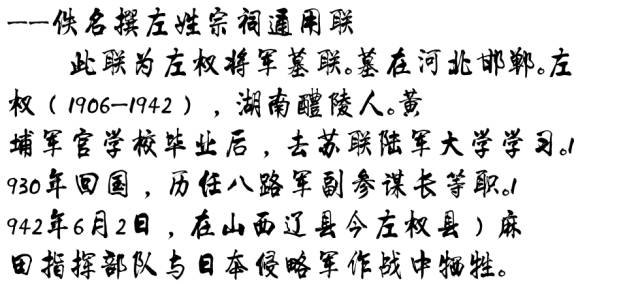 ——佚名撰左姓宗祠通用联
此联为左权将军墓联。墓在河北邯郸。左
权（1906—1942），湖南醴陵人。黄
埔军官学校毕业后，去苏联陆军大学学习。1
930年回国，历任八路军副参谋长等职。1
942年6月2日，在山西辽县今左权县）麻
田指挥部队与日本侵略军作战中牺牲。